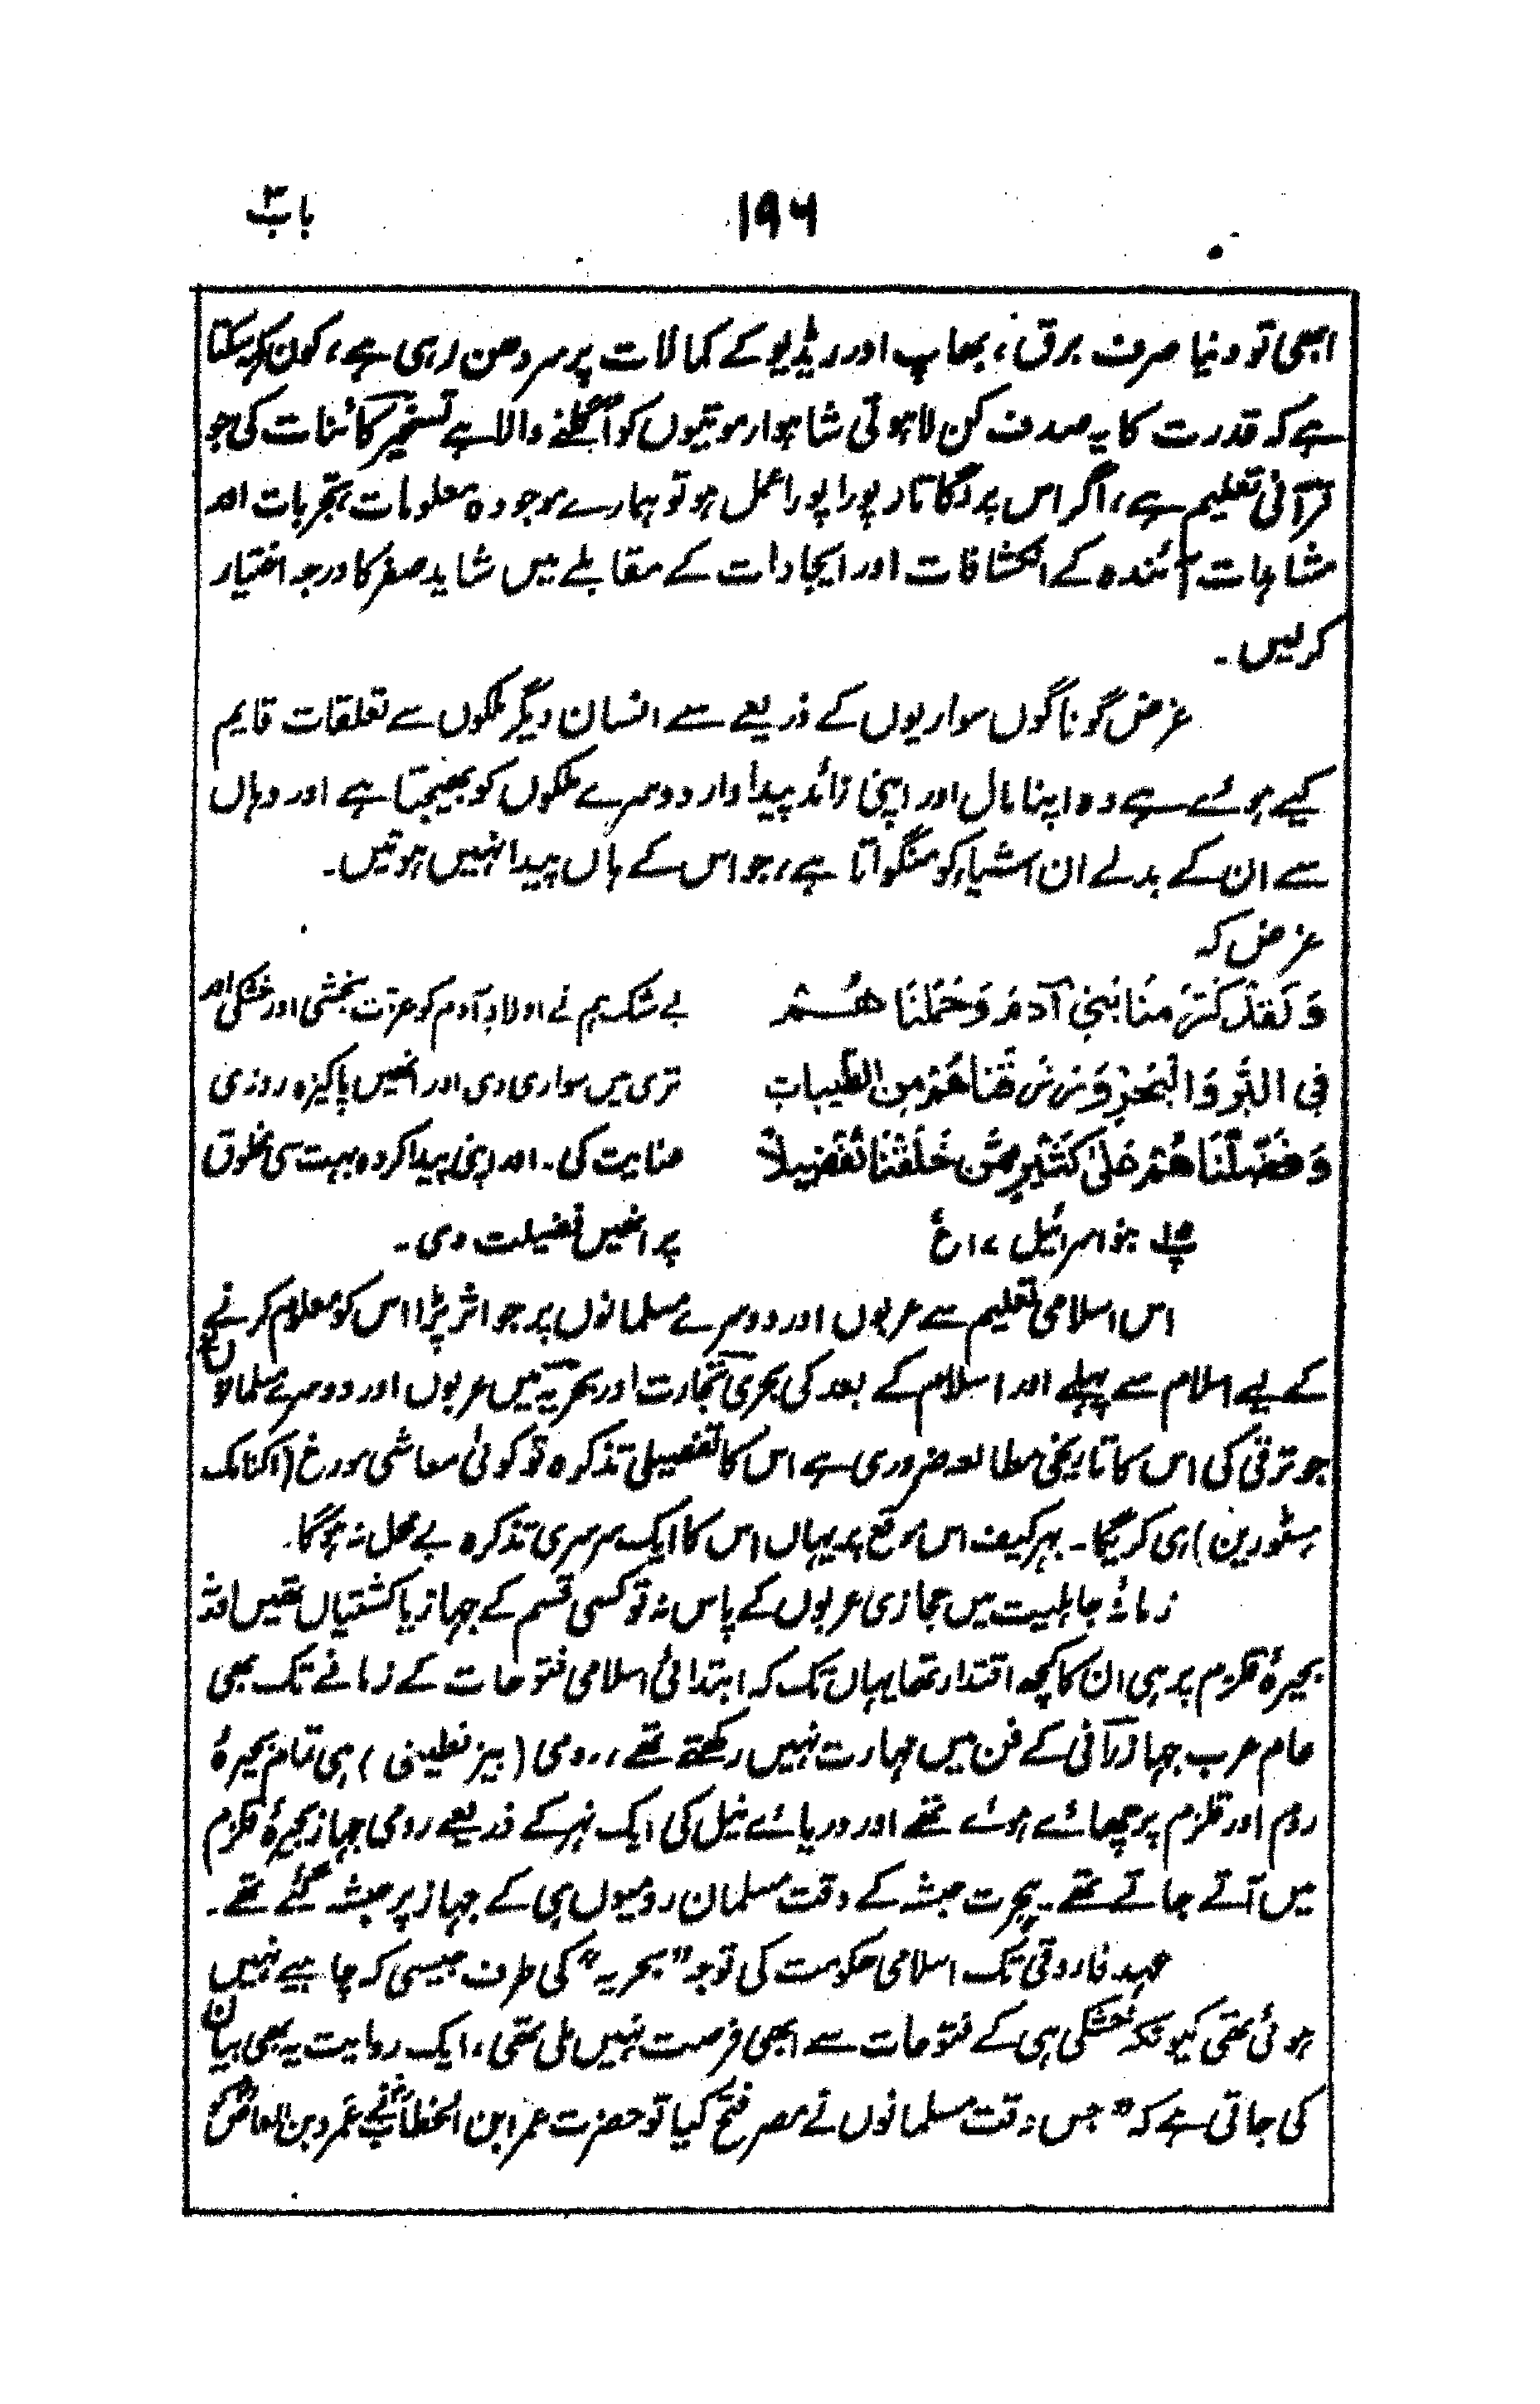 باب ۳
۱۹۶
ابھی تو دنیا صرف برق، بھاپ اور ریڈیو کے کمالات پر سر دھن رہی ہے، کون کہہ سکتا
ہے کہ قدرت کا یہ صدف کن لاہوتی شاہوار موتیوں کو اگلنے والا ہے تسخیر کائنات کی جو
قرآنی تعلیم ہے، اگر اس پر لگاتار پورا پورا عمل ہو تو ہمارے موجودہ معلومات، تجربات اور
مشاہدات آئندہ کے انکشافات اور ایجادات کے مقابلے میں شاید صفر کا درجہ اختیار
کرلیں۔
غرض گوناگوں سواریوں کے ذریعے سے انسان دیگر ملکوں سے تعلقات قایم
کیے ہوئے ہے وہ اپنا مال اور اپنی زائد پیداوار دوسرے ملکوں کو بھیجتا ہے اور وہاں
سے ان کے بدلے ان اشیاء کو منگواتا ہے، جو اس کے ہاں پیدا نہیں ہوتیں۔
غرض کہ
وَلَقَدْ كَرَّمْنَا بَنِي آدَمَ وَحَمَلْنَاهُمْ
بے شک ہم نے اولاد آدم کو عزت بخشی اور خشکی اور
فِي الْبَرِّ وَالْبَحْرِ وَرَزَقْنَاهُمْ مِنَ الطَّيِّبَاتِ
تری میں سواری دی اور انھیں پاکیزہ روزی
وَفَضَّلْنَاهُمْ عَلَىٰ كَثِيرٍ مِّمَّنْ خَلَقْنَا تَفْضِيلًا
عنایت کی۔ اور اپنی پیدا کردہ بہت سی مخلوق
پ۱۵ بنو اسرائیل ۱۷ ع
پر انھیں فضیلت دی۔
اس اسلامی تعلیم سے عربوں اور دوسرے مسلمانوں پر جو اثر پڑا اس کو معلوم کرنے
کے لیے اسلام سے پہلے اور اسلام کے بعد کی بحری تجارت اور بحریہ میں عربوں اور دوسرے مسلمانوں
جو ترقی کی اس کا تاریخی مطالعہ ضروری ہے اس کا تفصیلی تذکرہ تو کوئی معاشی مورخ (اکنامک
ہسٹورین) ہی کریگا۔ بہر کیف اس موقع پر یہاں اس کا ایک سرسری تذکرہ بے محل نہ ہوگا۔
زمانۂ جاہلیت میں حجازی عربوں کے پاس نہ تو کسی قسم کے جہاز یا کشتیاں تھیں اور نہ
بحیرۂ قلزم پر ہی ان کا کچھ اقتدار تھا یہاں تک کہ ابتدائی اسلامی فتوحات کے زمانے تک بھی
عام عرب جہاز رانی کے فن میں مہارت نہیں رکھتے تھے، رومی (بیز نطینی) ہی تمام بحیرۂ
روم اور قلزم پر چھائے ہوئے تھے اور دریائے نیل کی ایک نہر کے ذریعے رومی جہاز بحیرۂ قلزم
میں آتے جاتے تھے۔ ہجرت حبشہ کے وقت مسلمان رومیوں ہی کے جہاز پر حبشہ گئے تھے۔
عہد فاروقی تک اسلامی حکومت کی توجہ "بحریہ" کی طرف جیسی کہ چاہیے نہیں
ہوئی تھی کیونکہ خشکی ہی کے فتوحات سے ابھی فرصت نہیں ملی تھی، ایک روایت یہ بھی بیان
کی جاتی ہے کہ "جس وقت مسلمانوں نے مصر فتح کیا تو حضرت عمر ابن الخطابؓ نے عمرو بن العاصؓ کو